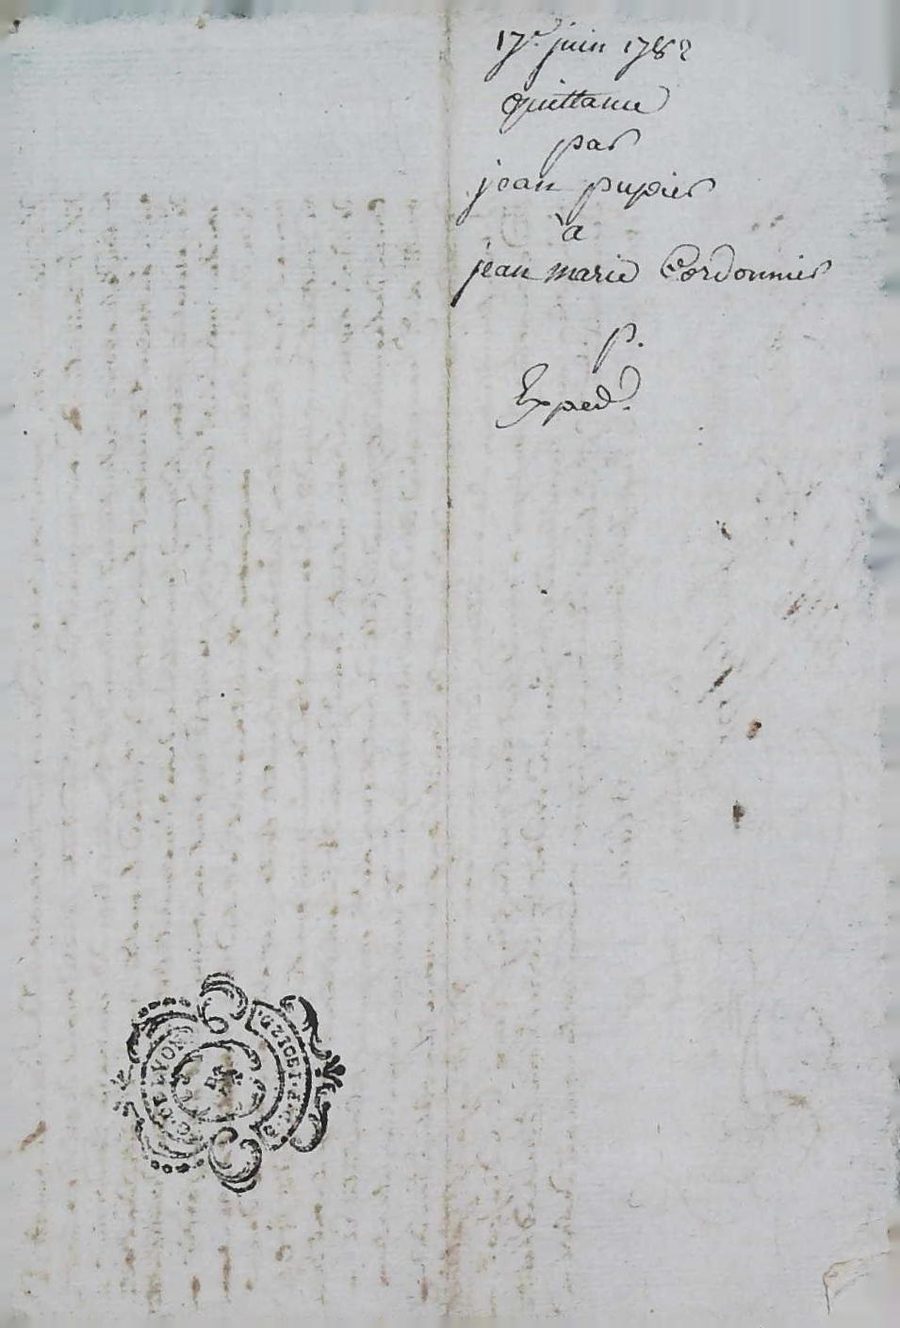 17e juin 1782
quittance
par
jean pupier
à
jean marie Cordonnier
p.
Exped.
G. DE LYON